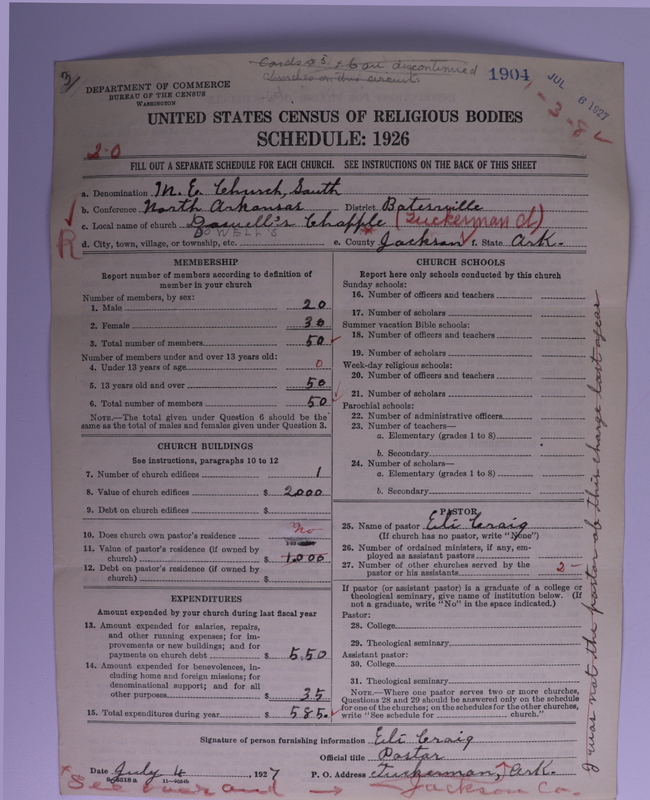 3/
Cards #5 & 6 are discontinued
churches on this circuit.
1904
JUL 6 1927
1-3-8
DEPARTMENT OF COMMERCE
BUREAU OF THE CENSUS
WASHINGTON
UNITED STATES CENSUS OF RELIGIOUS BODIES
SCHEDULE: 1926
2-0
FILL OUT A SEPARATE SCHEDULE FOR EACH CHURCH. SEE INSTRUCTIONS ON THE BACK OF THIS SHEET
a. Denomination M. E. Church, South
b. Conference North Arkansas District Batesville
c. Local name of church Dowell's Chapple (Tuckerman ct)
DOWELL'S
R
d. City, town, village, or township, etc. e. County Jackson f. State Ark.
MEMBERSHIP
Report number of members according to definition of
member in your church
Number of members, by sex:
1. Male 20
2. Female 30
3. Total number of members 50
Number of members under and over 13 years old:
4. Under 13 years of age 0
5. 13 years old and over 50
6. Total number of members 50
NOTE.—The total given under Question 6 should be the
same as the total of males and females given under Question 3.
CHURCH BUILDINGS
See instructions, paragraphs 10 to 12
7. Number of church edifices 1
8. Value of church edifices $ 2000
9. Debt on church edifices $
10. Does church own pastor's residence No
11. Value of pastor's residence (if owned by
church) $ 1,000
12. Debt on pastor's residence (if owned by
church) $
EXPENDITURES
Amount expended by your church during last fiscal year
13. Amount expended for salaries, repairs,
and other running expenses; for im-
provements or new buildings; and for
payments on church debt $ 550
14. Amount expended for benevolences, in-
cluding home and foreign missions; for
denominational support; and for all
other purposes $ 35
15. Total expenditures during year $ 585.
CHURCH SCHOOLS
Report here only schools conducted by this church
Sunday schools:
16. Number of officers and teachers
17. Number of scholars
Summer vacation Bible schools:
18. Number of officers and teachers
19. Number of scholars
Week-day religious schools:
20. Number of officers and teachers
21. Number of scholars
Parochial schools:
22. Number of administrative officers
23. Number of teachers—
a. Elementary (grades 1 to 8)
b. Secondary
24. Number of scholars—
a. Elementary (grades 1 to 8)
b. Secondary
PASTOR
25. Name of pastor Eli Craig
(If church has no pastor, write "None")
26. Number of ordained ministers, if any, em-
ployed as assistant pastors
27. Number of other churches served by the
pastor or his assistants 2
If pastor (or assistant pastor) is a graduate of a college or
theological seminary, give name of institution below. (If
not a graduate, write "No" in the space indicated.)
Pastor:
28. College
29. Theological seminary
Assistant pastor:
30. College
31. Theological seminary
NOTE.—Where one pastor serves two or more churches,
Questions 28 and 29 should be answered only on the schedule
for one of the churches; on the schedules for the other churches,
write "See schedule for church."
I was not the pastor of this charge last year
Signature of person furnishing information Eli Craig
Official title Pastor
Date July 4, 1927 P. O. Address Tuckerman, Ark.
*See over and → Jackson Co.